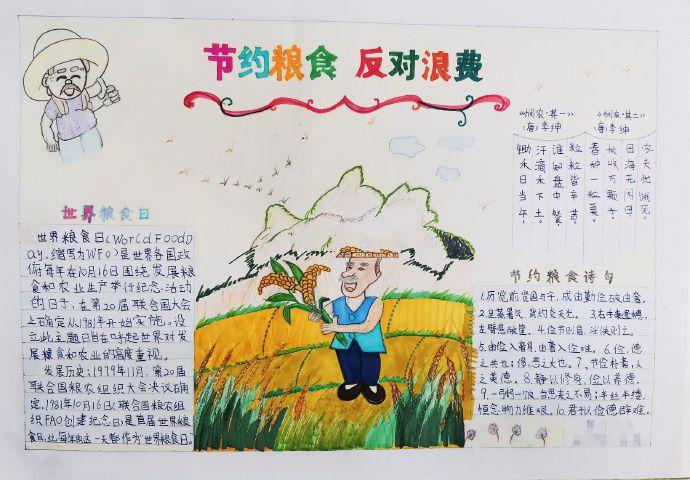 节约粮食 反对浪费
世界粮食日
世界粮食日(World FoodD
ay,缩写为WFO)是世界各国政
府每年在10月16日围绕发展粮
食和农业生产举行纪念活动
的日子,在第20届联合国大会
上确定从1981年开始实施,设
立此主题日旨在呼起世界对发
展粮食和农业的高度重视。
发展历史:1979年11月,第20届
联合国粮农组织大会决议确
定,1981年10月16日(联合国粮农组
织FAO创建纪念日)是首届世界粮
食日,此每年的这一天都作为"世界粮食日。
《悯农·其一》
(唐)李绅
锄禾日当午
汗滴禾下土。
谁知盘中餐
粒粒皆辛苦。
《悯农·其二》
(唐)李绅
春种一粒粟
秋收万颗子
四海无闲田
农夫犹饿死。
节约粮食诗句
1.历览前贤国与家,成由勤俭破由奢。
4.俭节则昌,淫佚则亡。
5.由俭入奢易,由奢入俭难。 6.俭,德
之共也;侈,恶之大也。 7.节俭朴素,人
之美德。 8.静以修身,俭以养德。
9.一粥一饭,当思来之不易;半丝半缕,
恒念物力维艰。 10.君子以俭德辟难。